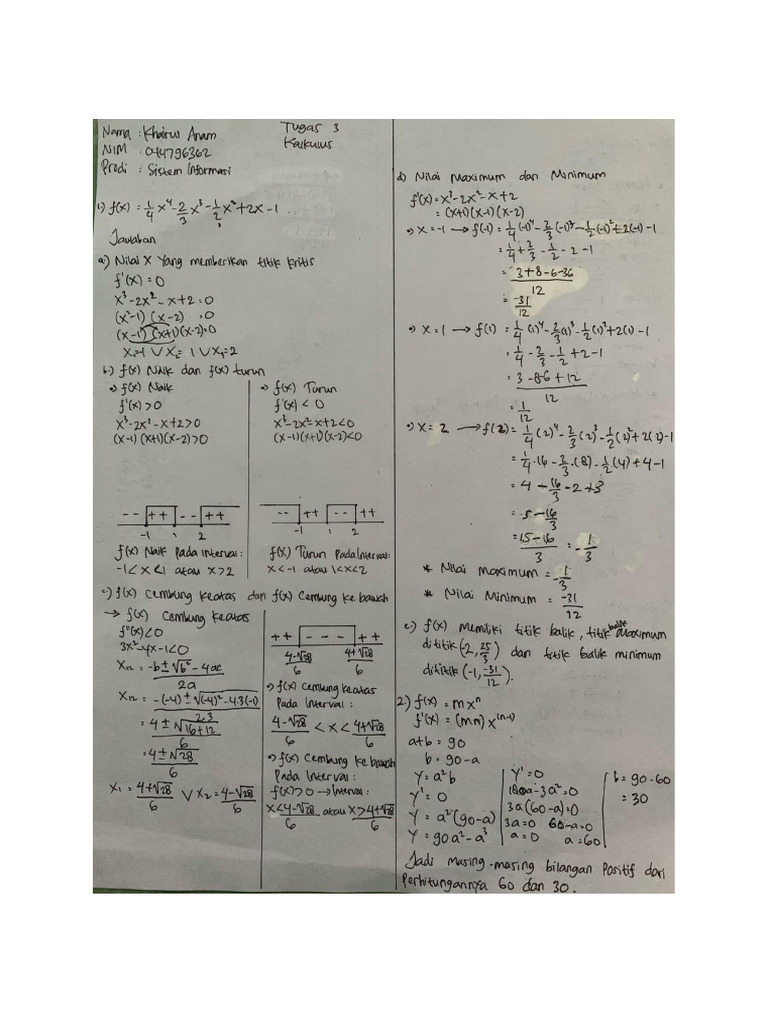 Nama : Khairul Anam
NIM : 044796362
Prodi : Sistem Informasi
Tugas 3
Kalkulus
1.) f(x) = 1/4 x⁴ - 2/3 x³ - 1/2 x² + 2x - 1
Jawaban
a.) Nilai X yang memberikan titik kritis
f'(x) = 0
x³ - 2x² - x + 2 = 0
(x² - 1) (x - 2) = 0
(x - 1) (x + 1) (x - 2) = 0
b.) f(x) Naik dan f(x) turun
=> f(x) Naik
f'(x) > 0
x³ - 2x² - x + 2 > 0
(x - 1) (x + 1) (x - 2) > 0
-- ++ -- ++
-1 1 2
f(x) Naik Pada interval:
-1 < x < 1 atau x > 2
=> f(x) Turun
f'(x) < 0
x³ - 2x² - x + 2 < 0
(x - 1) (x + 1) (x - 2) < 0
-- ++ -- ++
-1 1 2
f(x) Turun Pada Interval:
x < -1 atau 1 < x < 2
c.) f(x) Cembung Keatas dan f(x) Cembung Ke bawah
→ f(x) Cembung Keatas
f''(x) < 0
3x² - 4x - 1 < 0
X₁₂ = -b ± √b² - 4ac / 2a
X₁₂ = -(-4) ± √(-4)² - 4.3(-1) / 2.3
= 4 ± √16 + 12 / 6
= 4 ± √28 / 6
X₁ = 4 + √28 / 6 V X₂ = 4 - √28 / 6
++ --- ++
4 - √28 / 6 4 + √28 / 6
=> f(x) Cembung Keatas
Pada Interval:
4 - √28 / 6 < x < 4 + √28 / 6
=> f(x) Cembung Ke bawah
Pada Interval:
f(x) > 0 → Interval:
x < 4 - √28 / 6 atau x > 4 + √28 / 6
d.) Nilai Maximum dan Minimum
f'(x) = x³ - 2x² - x + 2
= (x + 1) (x - 1) (x - 2)
=> x = -1 → f(-1) = 1/4 (-1)⁴ - 2/3 (-1)³ - 1/2 (-1)² + 2(-1) - 1
= 1/4 + 2/3 - 1/2 - 2 - 1
= 3 + 8 - 6 - 36 / 12
= -31 / 12
=> x = 1 → f(1) = 1/4 (1)⁴ - 2/3 (1)³ - 1/2 (1)² + 2(1) - 1
= 1/4 - 2/3 - 1/2 + 2 - 1
= 3 - 8 6 + 12 / 12
= 1 / 12
=> x = 2 → f(2) = 1/4 (2)⁴ - 2/3 (2)³ - 1/2 (2)² + 2(2) - 1
= 1/4 · 16 - 2/3 · (8) - 1/2 (4) + 4 - 1
= 4 - 16/3 - 2 + 3
= 5 - 16/3
= 15 - 16 / 3 = - 1/3
* Nilai Maximum = - 1/3
* Nilai Minimum = -31 / 12
e.) f(x) memiliki titik balik, titik balik Maximum
dititik (2, 25/3) dan titik balik minimum
dititik (-1, -31/12).
2.) f(x) = mxⁿ
f'(x) = (mn) x⁽ⁿ⁻¹⁾
a + b = 90
b = 90 - a
Y = a² b
Y' = 0
Y = a² (90 - a)
Y = 90a² - a³
Y' = 0
180a - 3a² = 0
3a (60 - a) = 0
3a = 0 60 - a = 0
a = 0 a = 60
b = 90 - 60
= 30
Jadi masing-masing bilangan Positif dari
Perhitungannya 60 dan 30.